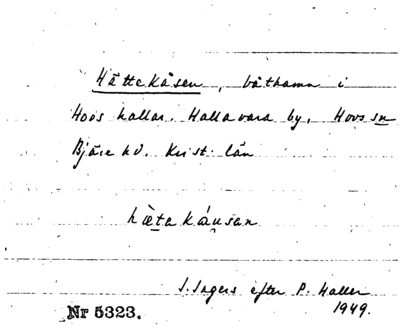 Hättekåsen, båthamn i
Hovs hallar. Hallavara by, Hovs sn
Bjäre hd. Krist. län
hæ̀ta káu̯san
I. Ingers efter P. Haller
1949.
Nr 5323.